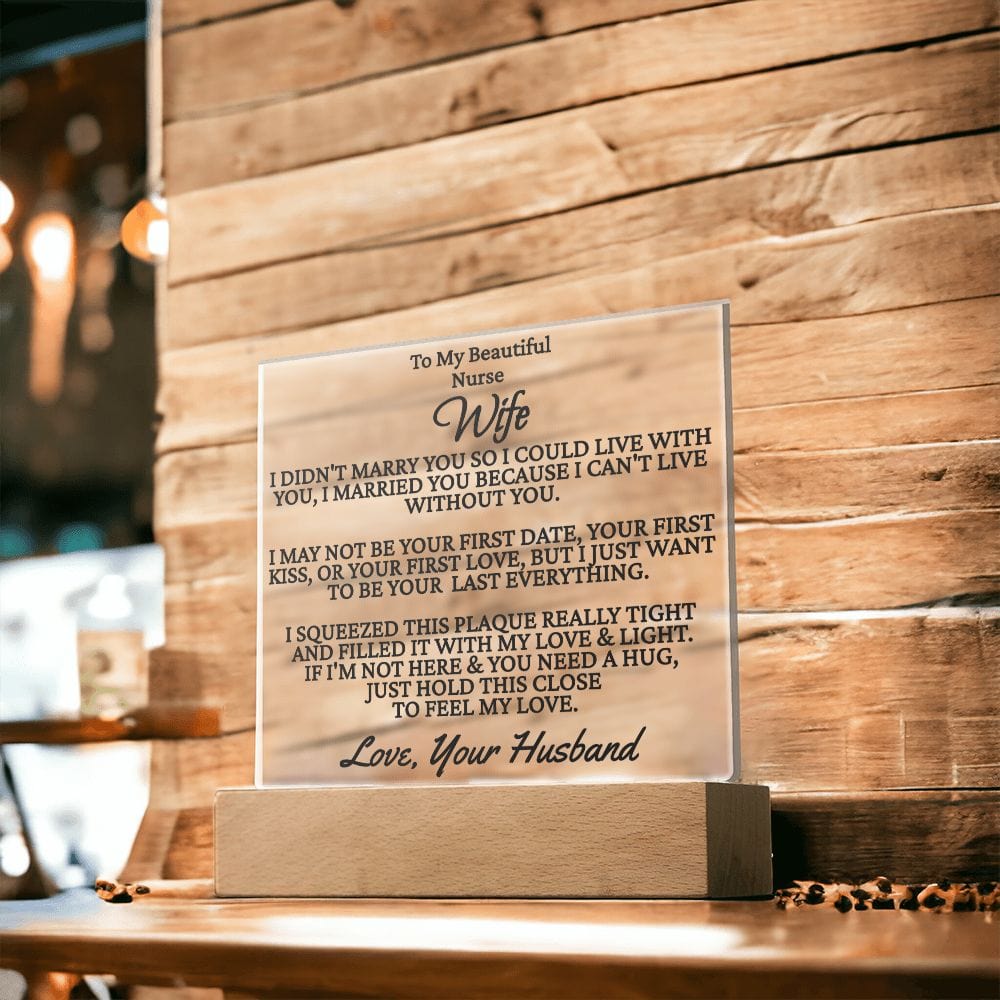 To My Beautiful
Nurse
Wife
I DIDN'T MARRY YOU SO I COULD LIVE WITH
YOU, I MARRIED YOU BECAUSE I CAN'T LIVE
WITHOUT YOU.
I MAY NOT BE YOUR FIRST DATE, YOUR FIRST
KISS, OR YOUR FIRST LOVE, BUT I JUST WANT
TO BE YOUR LAST EVERYTHING.
I SQUEEZED THIS PLAQUE REALLY TIGHT
AND FILLED IT WITH MY LOVE & LIGHT.
IF I'M NOT HERE & YOU NEED A HUG,
JUST HOLD THIS CLOSE
TO FEEL MY LOVE.
Love, Your Husband